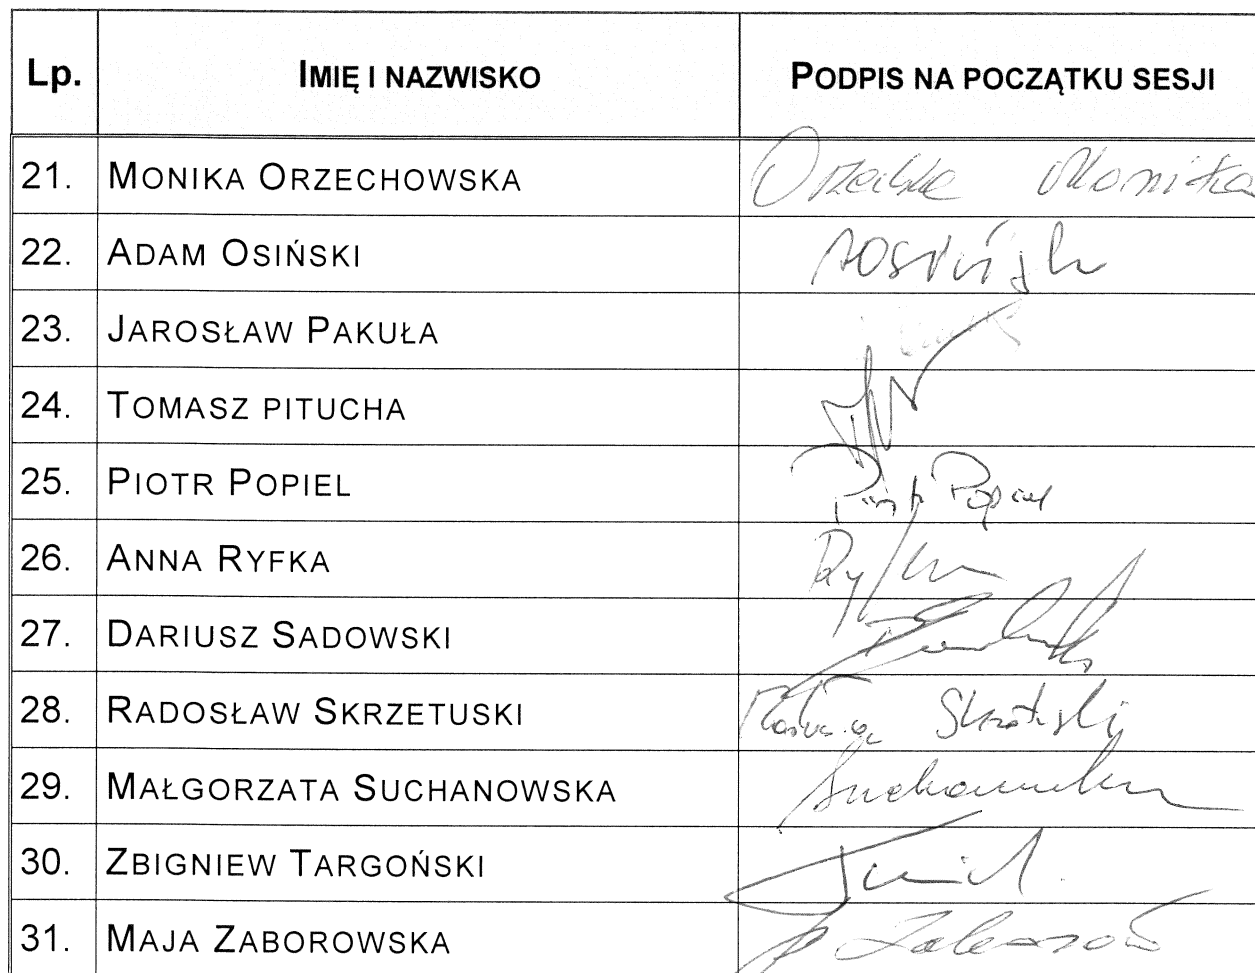 Lp. IMIĘ I NAZWISKO PODPIS NA POCZĄTKU SESJI
21. MONIKA ORZECHOWSKA Monika
22. ADAM OSIŃSKI
23. JAROSŁAW PAKUŁA
24. TOMASZ PITUCHA
25. PIOTR POPIEL Piotr Popiel
26. ANNA RYFKA
27. DARIUSZ SADOWSKI
28. RADOSŁAW SKRZETUSKI
29. MAŁGORZATA SUCHANOWSKA
30. ZBIGNIEW TARGOŃSKI
31. MAJA ZABOROWSKA